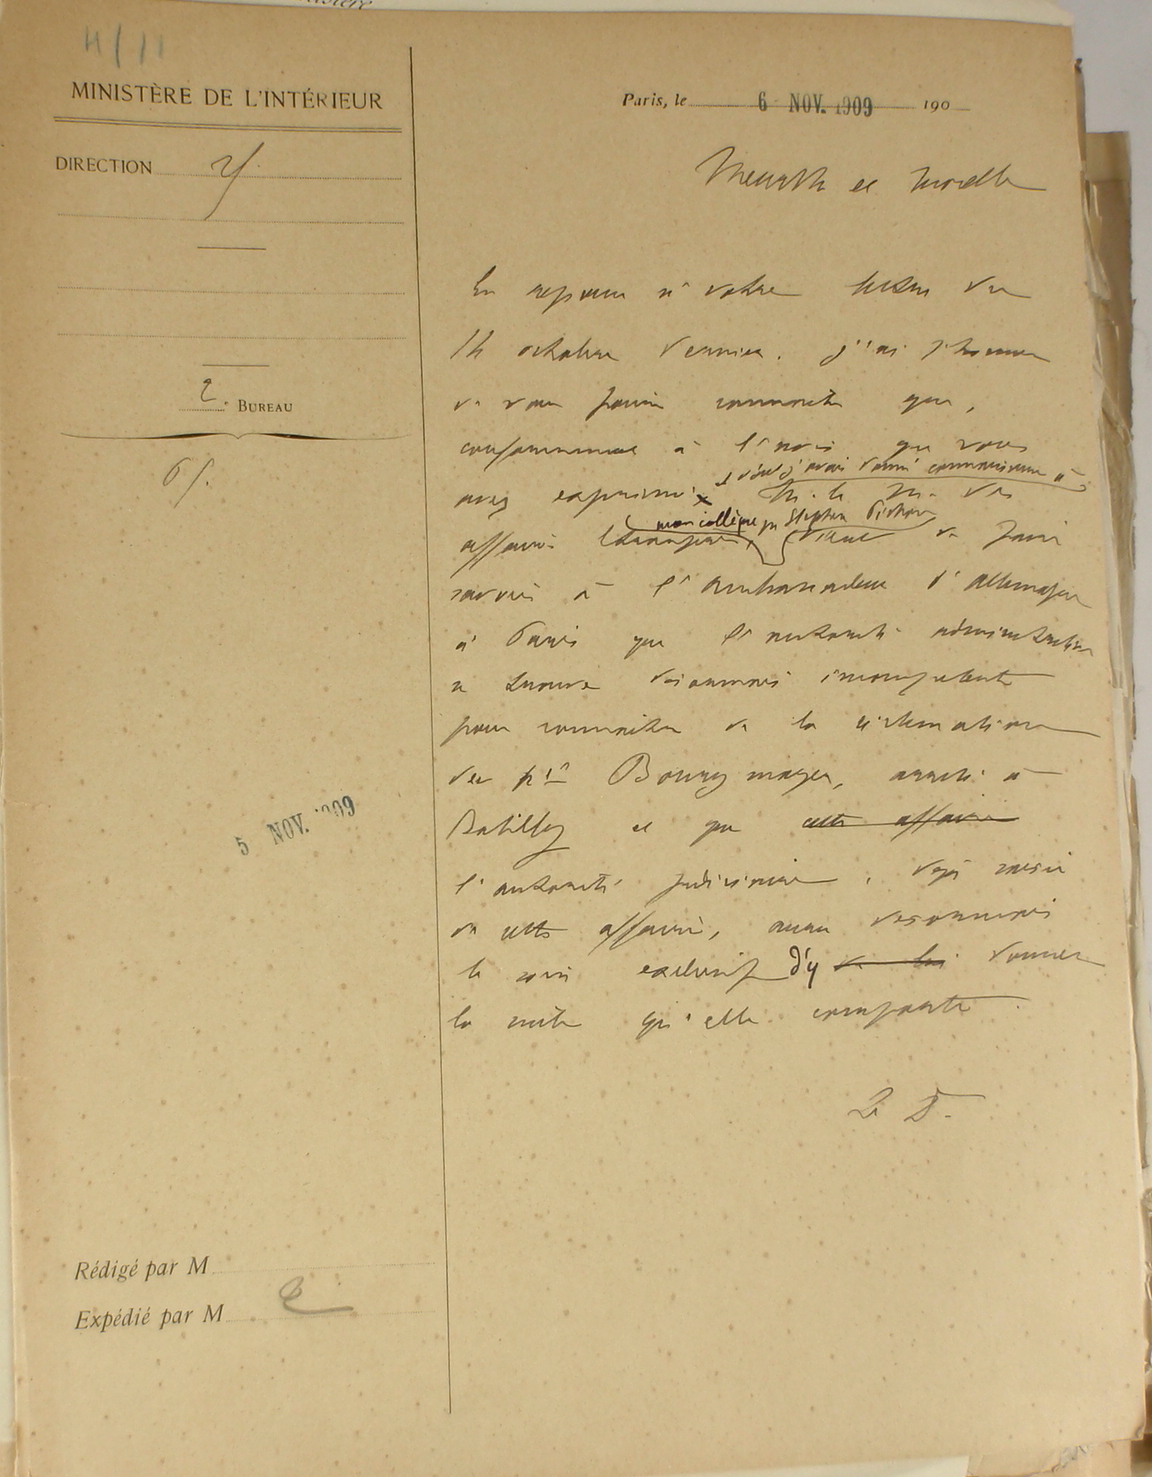 4/11
MINISTÈRE DE L'INTÉRIEUR
Paris, le 6 NOV. 1909 190
DIRECTION
Meurthe et Moselle
En réponse à votre lettre du
14 octobre dernier, j'ai l'honneur
de vous faire connaître que,
2e BUREAU
conformément à l'avis que vous
avez exprimé
et dont j'avais donné connaissance à
M. le M. des
affaires étrangères,
mon collègue, M. Stephen Pichon
vient de faire
savoir à l'Ambassadeur d'Allemagne
à Paris que l'autorité administrative
se trouve désormais incompétente
pour connaître de la réclamation
des Bourgmayer, arrêté à
Batilly et que cette affaire
l'autorité judiciaire, déjà saisie
de cette affaire, aura désormais
le soin exclusif d'y de lui donner
la suite qu'elle comporte.
5 NOV. 1909
Rédigé par M
Expédié par M